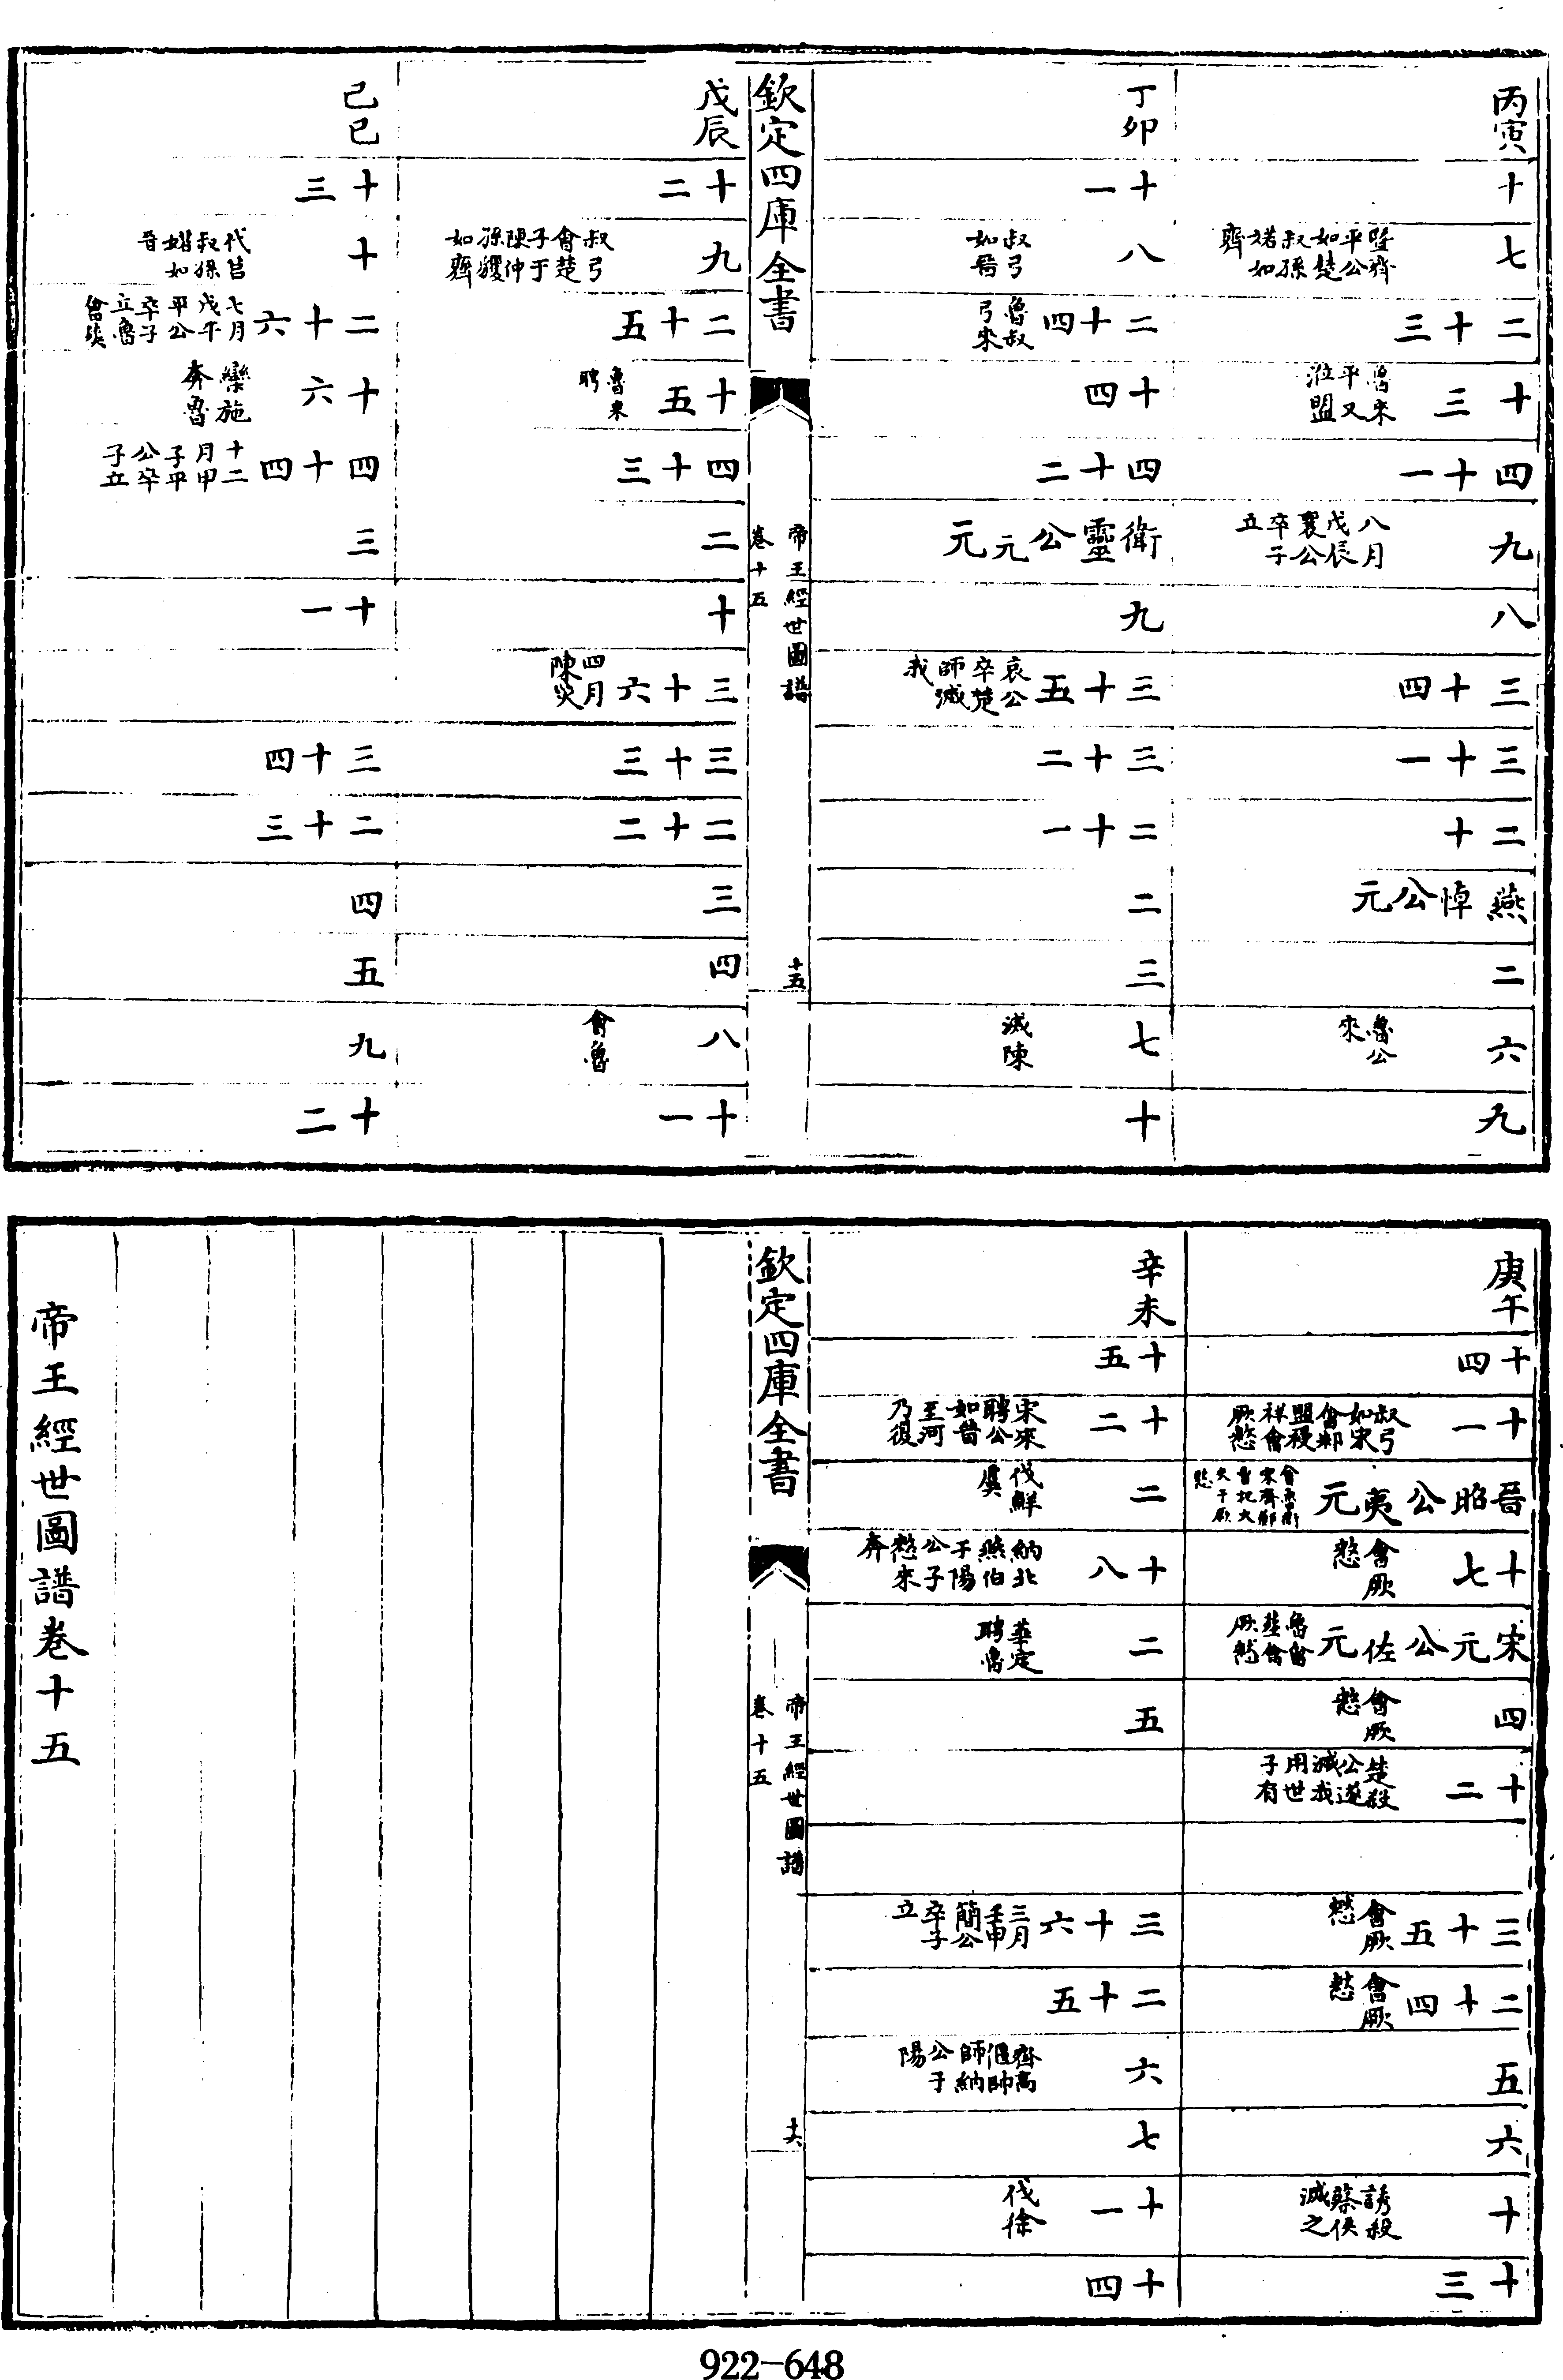 丙寅
十
七 暨齊平公如楚叔孫婼如齊
二十三
十三 魯來平又涖盟
四十一
九 八月戊辰襄公卒子立
八
三十四
三十一
二十
燕悼公元
二
六 魯公來
九
丁卯
十一
八 叔弓如晉
二十四 魯叔弓來
十四
四十二
衛靈公元元
九
三十五 哀公卒楚師滅我
三十二
二十一
二
三
七 滅陳
十
欽定四庫全書
帝王經世圖譜
卷十五
十五
戊辰
十二
九 叔弓會楚子于陳仲孫貜如齊
二十五
十五 魯來聘
四十三
二
十
三十六 四月陳災
三十三
二十二
三
四
八 會魯
十一
己巳
十三
十 伐莒叔孫婼如晉
二十六 七月戊午平公卒子立魯會葬
十六 欒施奔魯
四十四 十二月甲子平公卒子立
三
十一
三十四
二十三
四
五
九
十二
庚午
十四
十一 叔弓如宋會邾盟祲祥會厥憖
晉昭公夷元 會魯衛宋齊鄭曹杞大夫于厥憖
十七 會厥憖
宋元公佐元 魯會葬會厥憖
四 會厥憖
十二 楚殺公遂滅我用世子有
三十五 會厥憖
二十四 會厥憖
五
六
十 誘殺蔡侯滅之
十三
辛未
十五
十二 宋來聘公如晉至河乃復
二 伐鮮虞
十八 納北燕伯于陽公子憖來奔
二 華定聘魯
五
三十六 三月壬申簡公卒子立
二十五
六 齊高偃帥師納公于陽
七
十一 伐徐
十四
欽定四庫全書
帝王經世圖譜
卷十五
十六
帝王經世圖譜卷十五
922-648